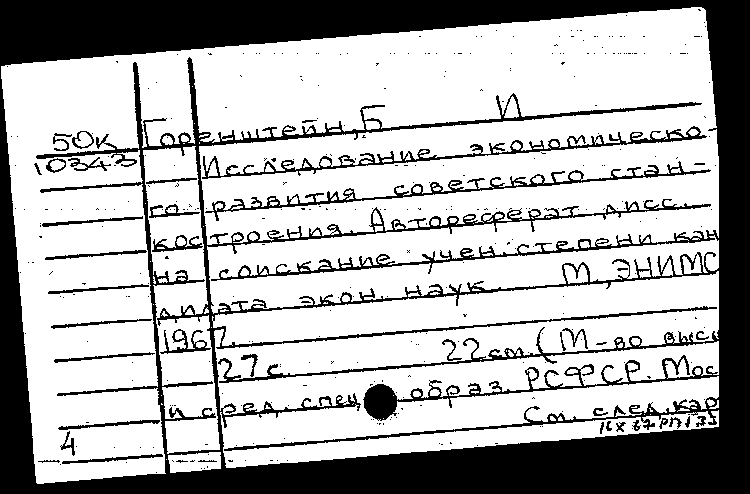 50к Горенштейн, Б И
10343 Исследование экономическо-
го развития советского стан-
костроения. Автореферат дисс.
на соискание учен. степени кан
дидата экон. наук. М., ЭНИМС
1967.
27 с. 22 см. (М-во высш
и сред. спец образ. РСФСР. Мос
4 См. след. кар